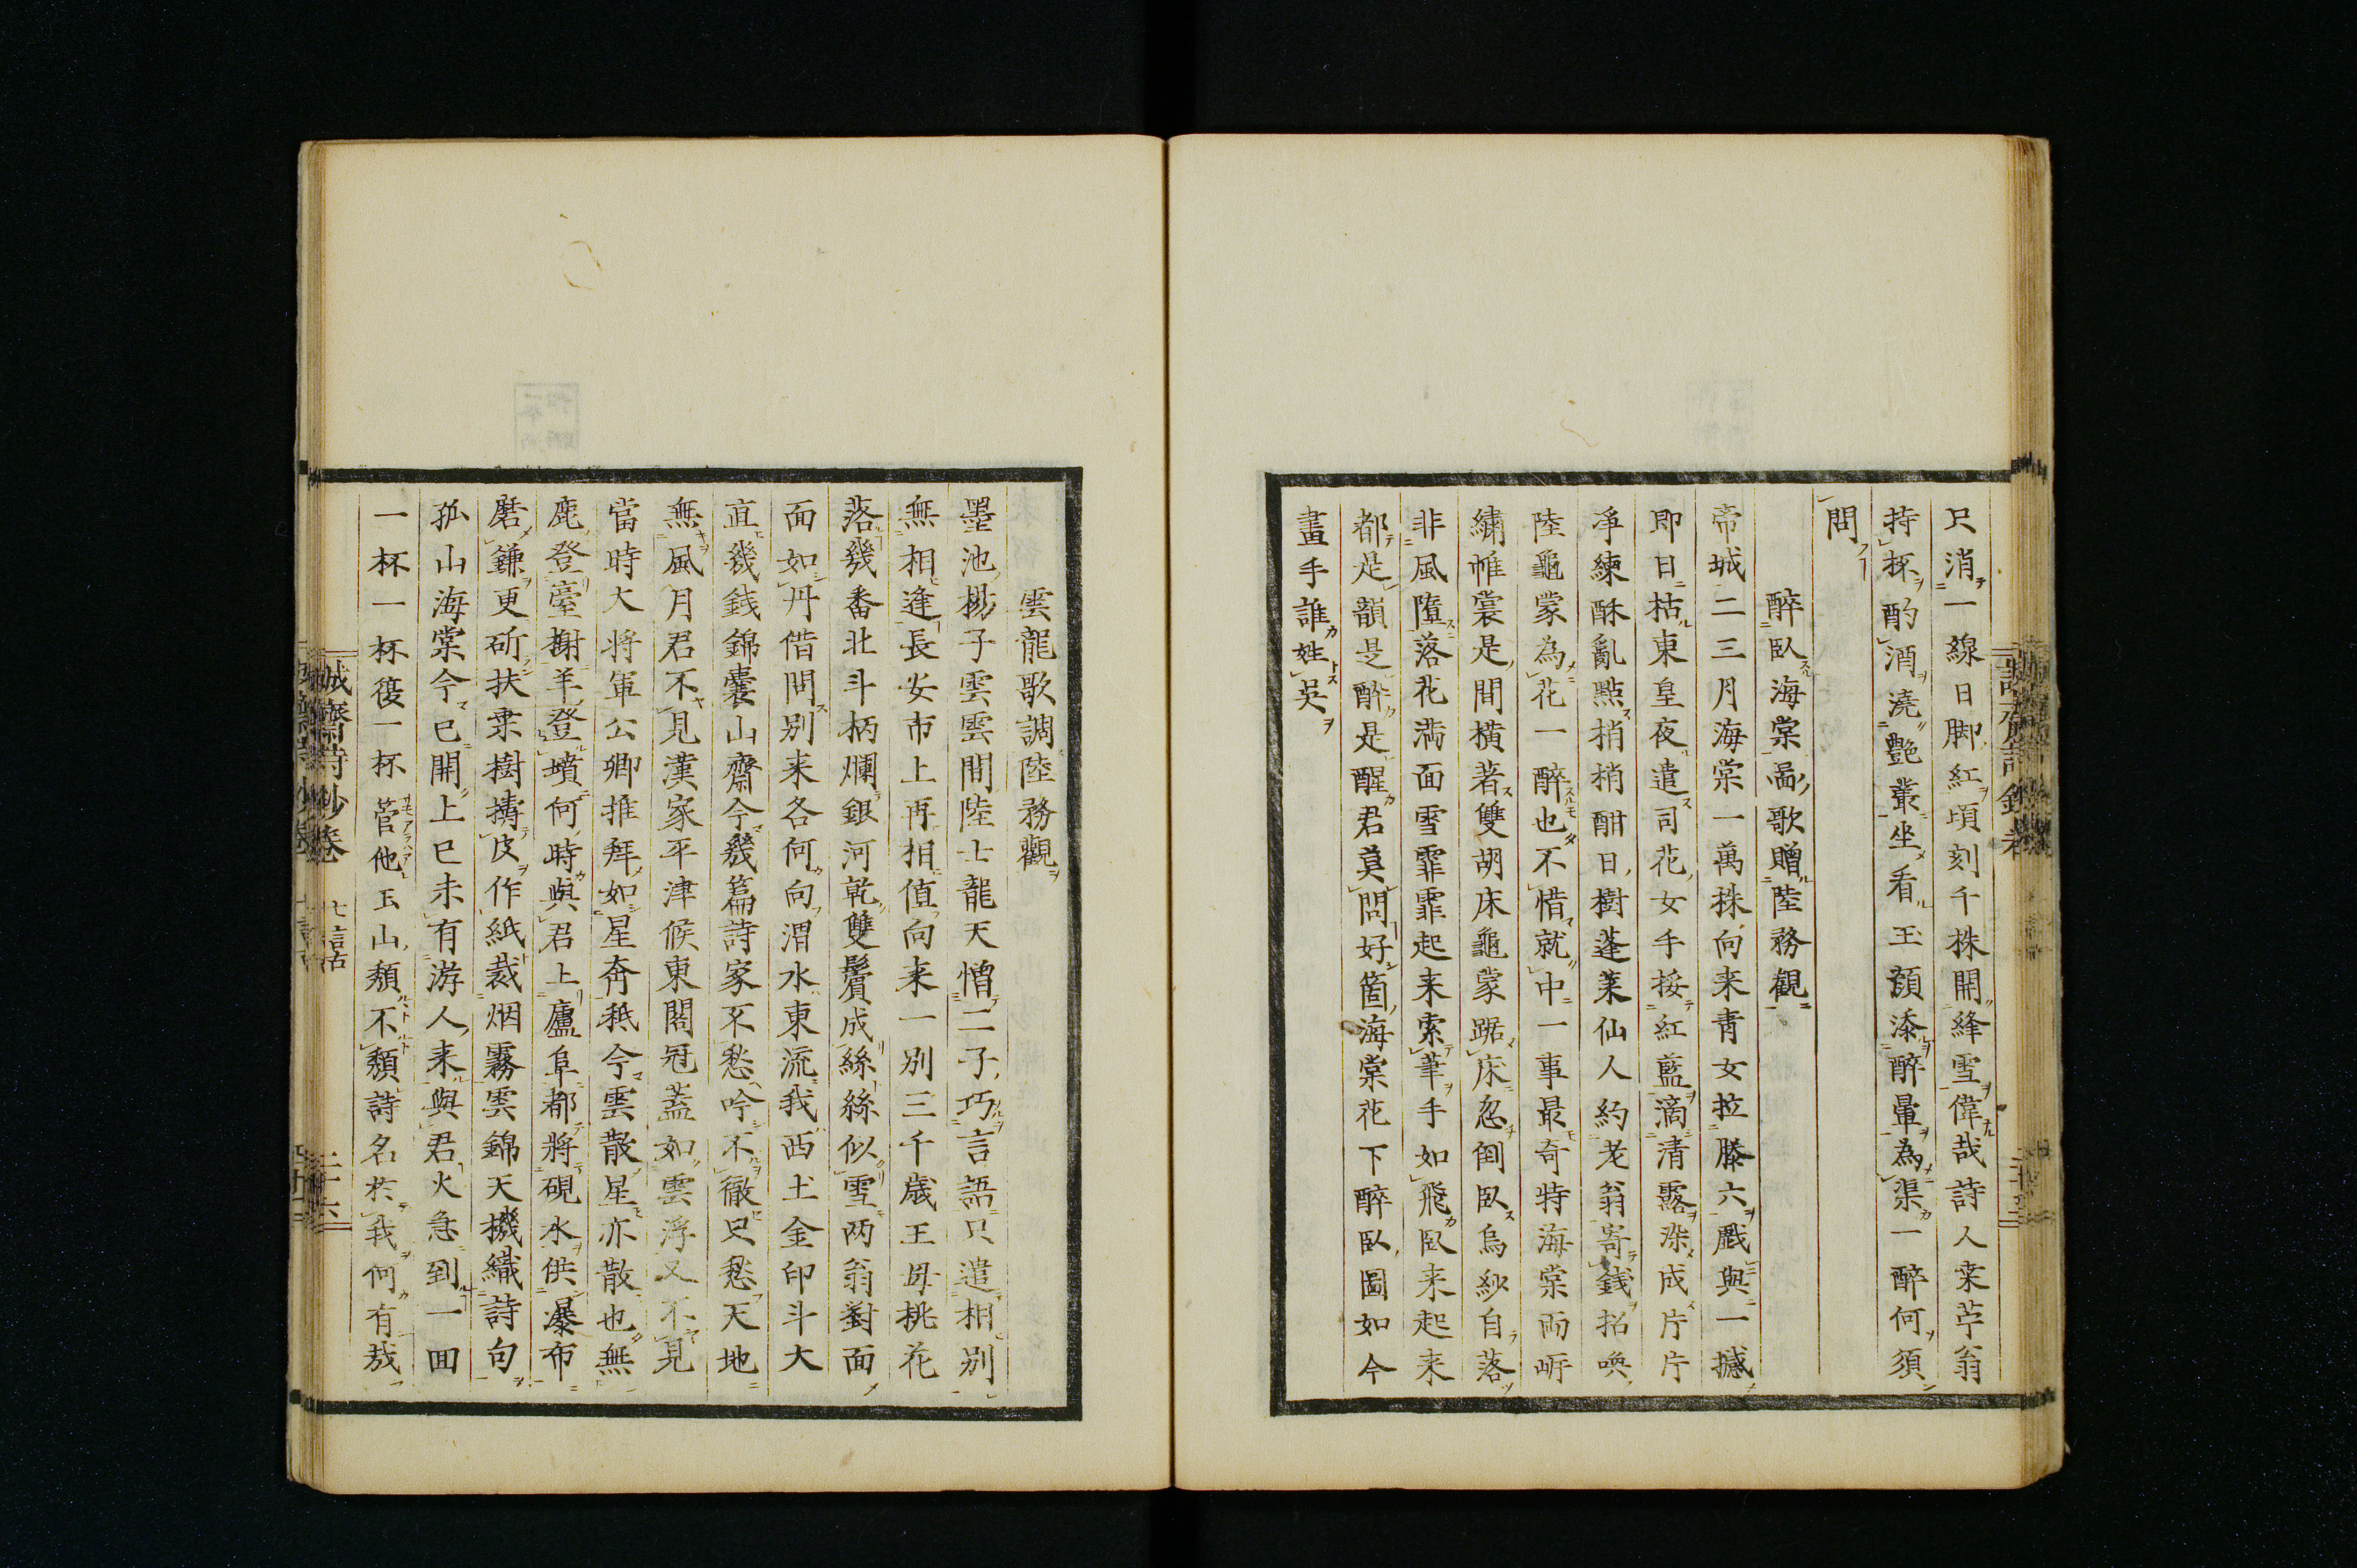 只消一線日脚紅頃刻千株開絳雪偉哉詩人桒苧翁
持杯酌酒澆艷叢坐看玉顔添醉暈為渠一醉何須
問
醉臥海棠圖歌贈陸務觀
帝城二三月海棠一萬株向来青女拉滕六戲與一撼
即日枯東皇夜遣司花女手挼紅藍滴清露染成片片
淨練酥亂點梢梢酣日樹蓬莱仙人約老翁寄錢招喚
陸龜蒙為花一醉也不惜就中一事最奇特海棠兩岍
繡帷裳是間横著雙胡床龜蒙踞床忽倒臥烏紗自落
非風隳落花満面雪霏霏起来索筆手如飛臥来起来
都是韻是醉是醒君莫問好箇海棠花下醉臥圖如今
畫手誰姓吳
雲龍歌調陸務觀
墨池楊子雲雲間陸士龍天憎二子巧言語只遣相別
無相逢長安市上再相值向来一別三千歳王母桃花
落幾番北斗柄爛銀河乾雙鬢成絲絲似雪两翁對面
面如丹借問別来各何向渭水東流我西土金印斗大
直幾錢錦囊山齋今幾篇詩家不愁吟不徹只愁天地
無風月君不見漢家平津侯東閣冠蓋如雲浮又不見
當時大将軍公卿推拜如星奔秪今雲散星亦散也無
鹿登臺榭羊登墳何時與君上廬阜都將硯水供瀑布
磨鎌更斫扶桒樹擣皮作紙裁烟霧雲錦天機織詩句
孤山海棠今已開上巳未有游人来與君火急到一回
一杯一杯復一杯菅他玉山頽不頽詩名於我何有㢤
誠齋詩鈔卷 七言古 二十六